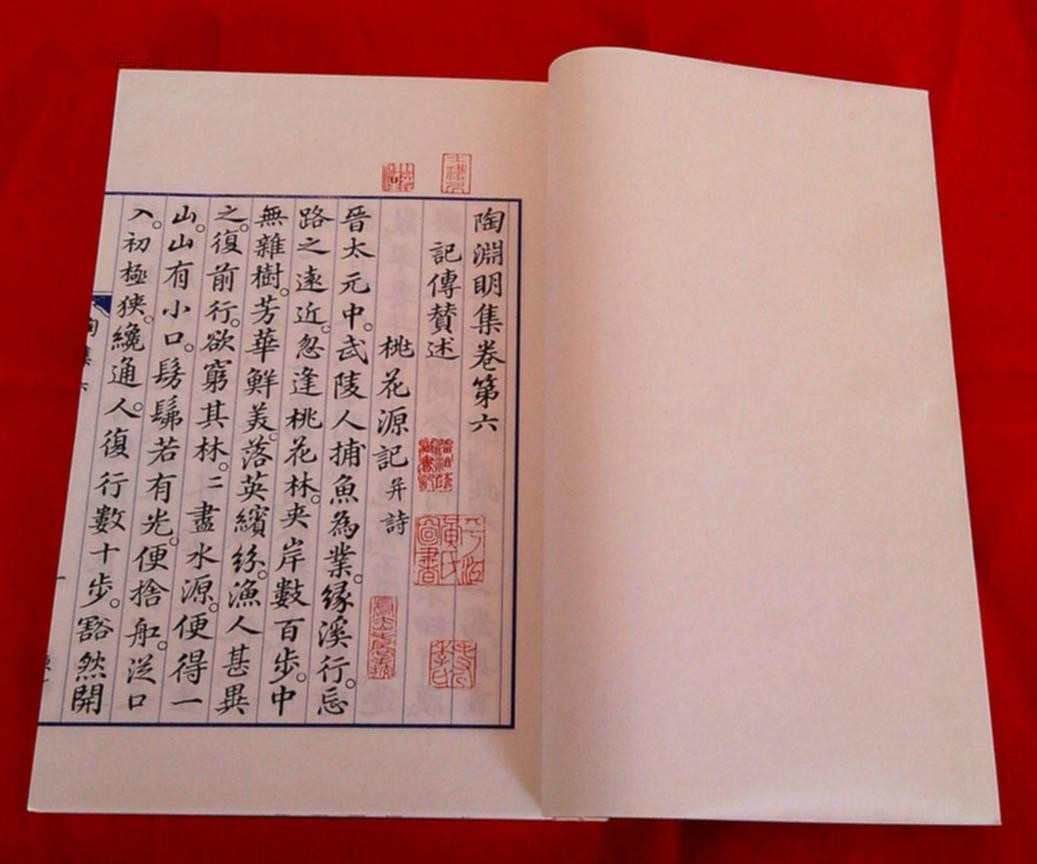 陶淵明集卷第六
記傳賛述
桃花源記并詩
晉太元中。武陵人捕魚為業。縁溪行。忘
路之逺近。忽逢桃花林。夾岸數百步。中
無雜樹。芳華鮮美。落英繽紛。漁人甚異
之。復前行。欲窮其林。二盡水源。便得一
山。山有小口。髣髴若有光。便捨舩。從口
入。初極狹。纔通人。復行數十步。豁然開